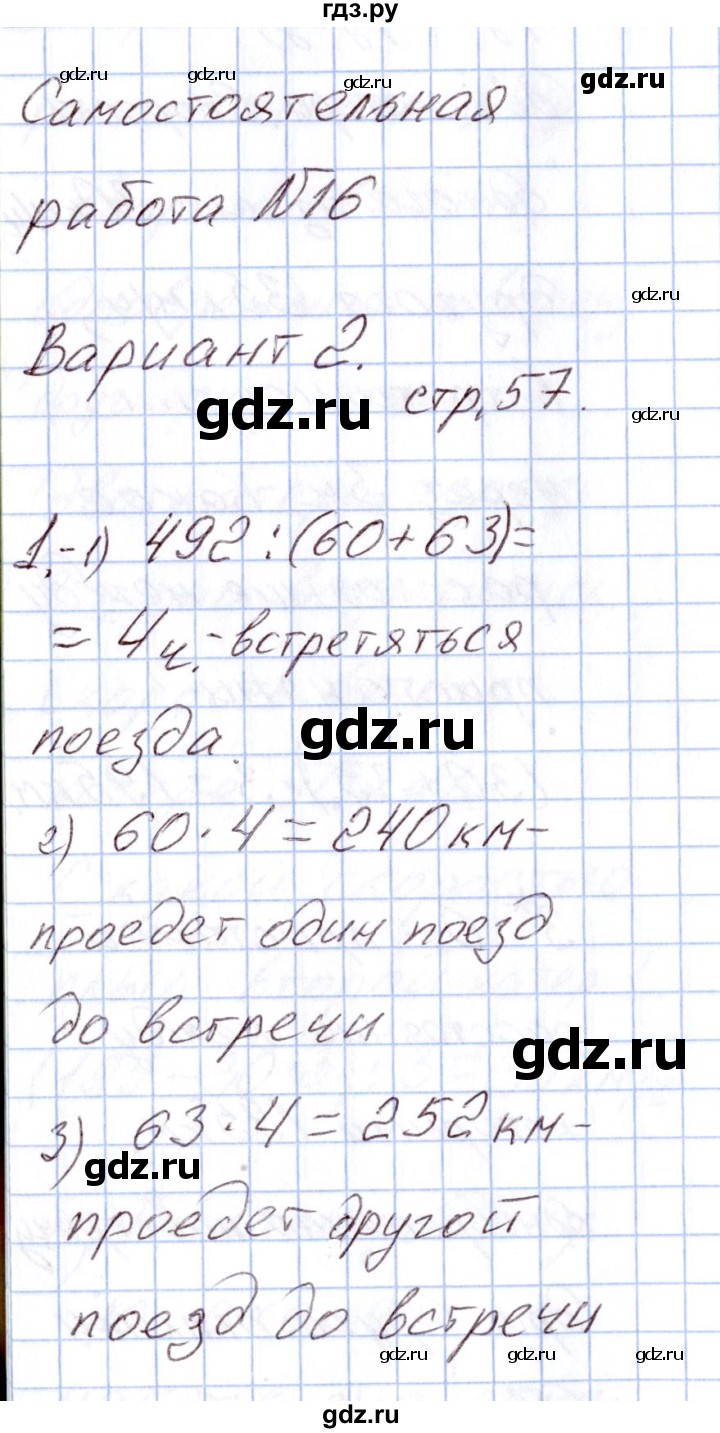 гдз.ру
gdz.ru gdz.ru gdz.ru
Самостоятельная
работа №16
gdz.ru
Вариант 2.
gdz.ru стр. 57. gdz.ru
1.-1) 492 : (60+63)=
= 4ч.-встретяться
поезда. gdz.ru
2) 60·4=240км-
проедет один поезд
до встречи
gdz.ru
3) 63·4=252км-
gdz.ru
проедет другой
поезд до встречи
gdz.ru gdz.ru gdz.ru
gdz.ru